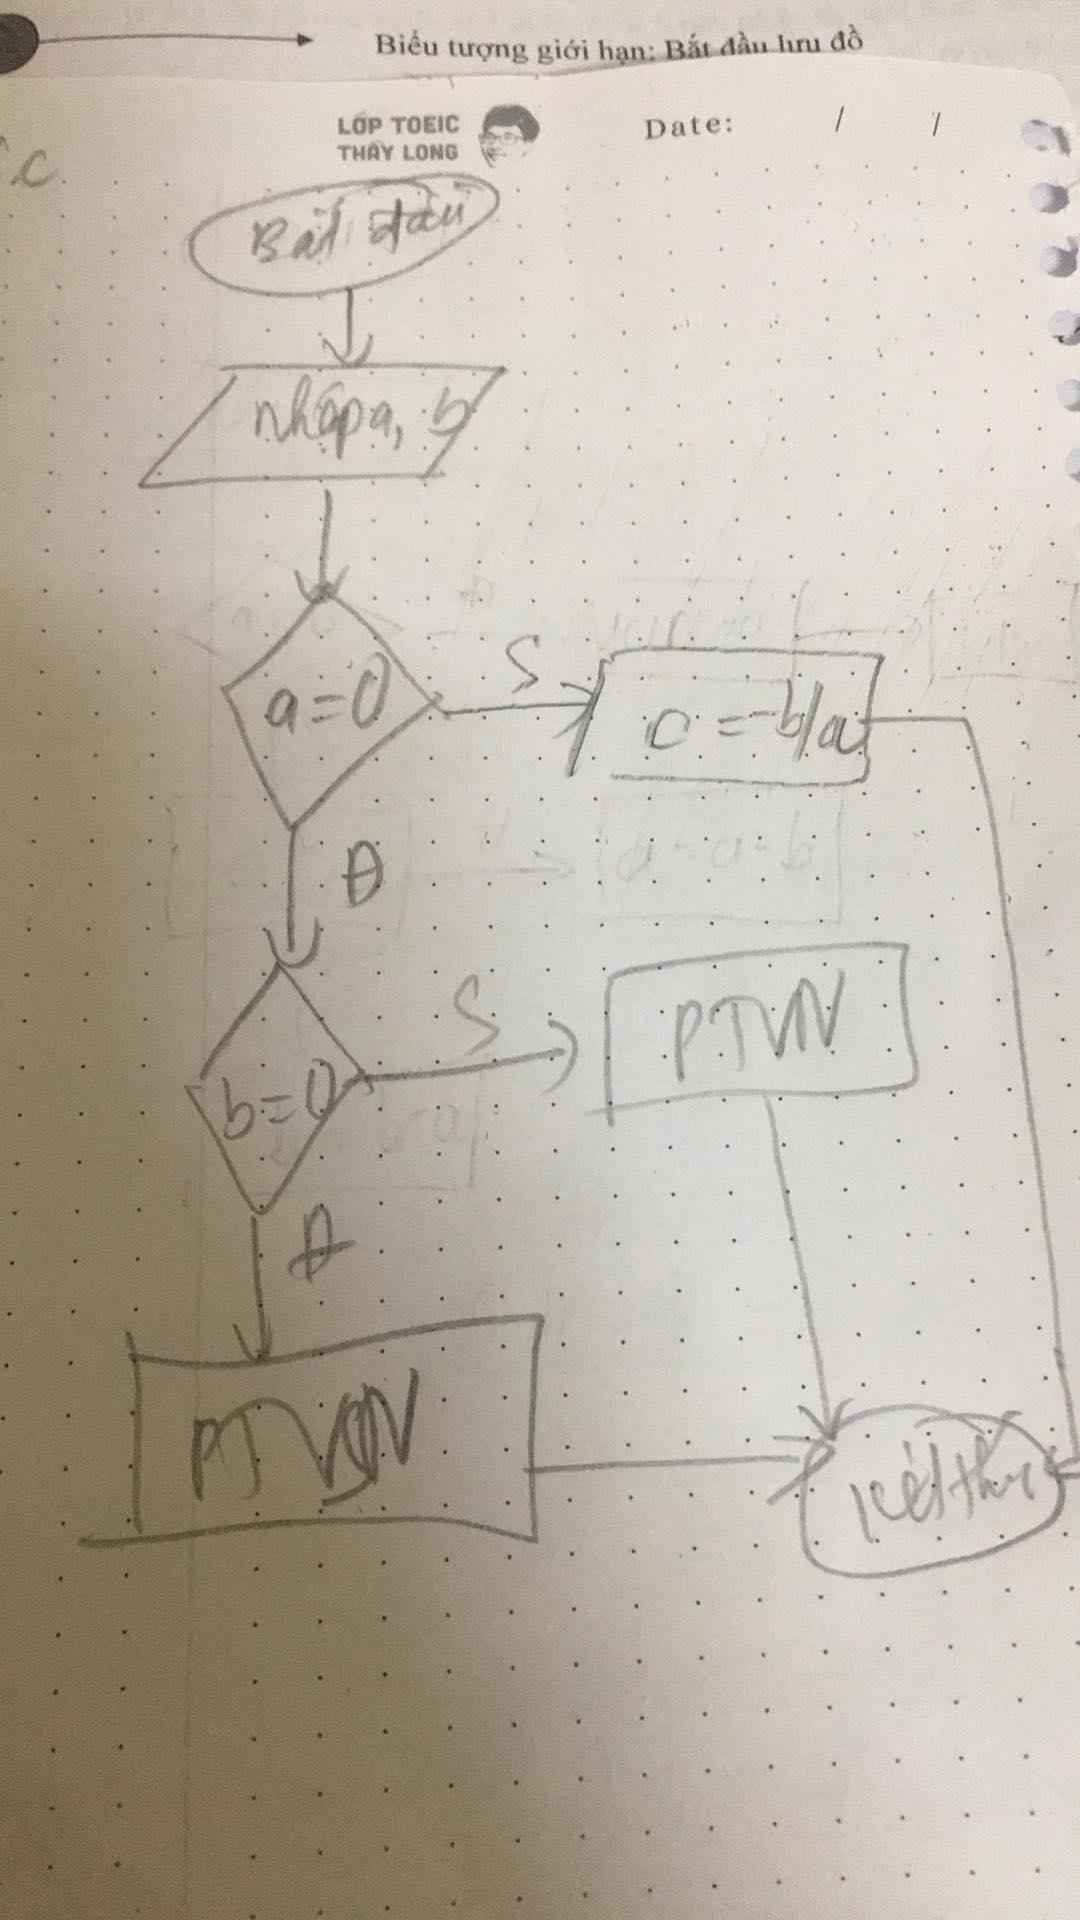 Biểu tượng giới hạn: Bắt đầu lưu đồ
LỚP TOEIC
THẦY LONG
Date: / /
c
Bắt đầu
nhập a, b
a=0
S
c = -b/a
Đ
b=0
S
PTVN
Đ
PTVSN
Kết thúc